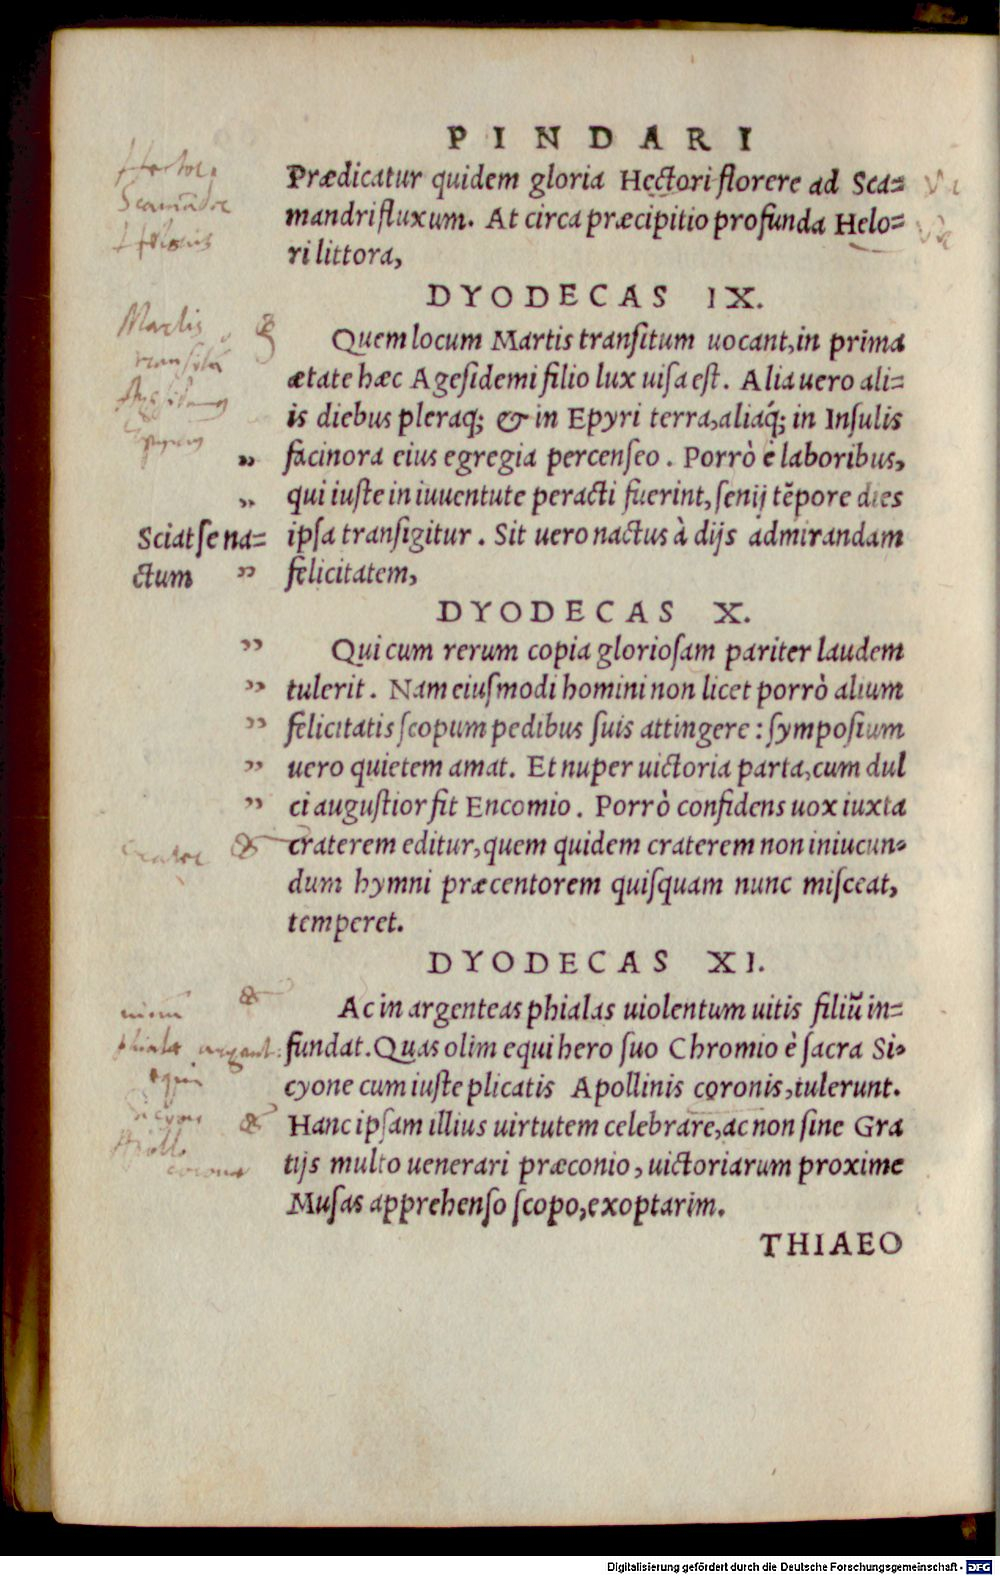 PINDARI
Prædicatur quidem gloria Hectori florere ad Sca=
mandri fluxum. At circa præcipitio profunda Helo=
ri littora,
DYODECAS IX.
Quem locum Martis transitum uocant, in prima
ætate hæc Agesidemi filio lux uisa est. Alia uero ali=
is diebus pleraq; & in Epyri terra, aliáq; in Insulis
facinora eius egregia percenseo. Porrò è laboribus,
qui iuste in iuuentute peracti fuerint, senij tẽpore dies
ipsa transigitur. Sit uero nactus à dijs admirandam
felicitatem,
DYODECAS X.
Qui cum rerum copia gloriosam pariter laudem
tulerit. Nam eiusmodi homini non licet porrò alium
felicitatis scopum pedibus suis attingere: symposium
uero quietem amat. Et nuper uictoria parta, cum dul
ci augustior fit Encomio. Porrò confidens uox iuxta
craterem editur, quem quidem craterem non iniucun=
dum hymni præcentorem quisquam nunc misceat,
temperet.
DYODECAS XI.
Ac in argenteas phialas uiolentum uitis filiũ in=
fundat. Quas olim equi hero suo Chromio è sacra Si=
cyone cum iuste plicatis Apollinis coronis, tulerunt.
Hanc ipsam illius uirtutem celebrare, ac non sine Gra
tijs multo uenerari præconio, uictoriarum proxime
Musas apprehenso scopo, exoptarim.
THIAEO
Sciat se na=
ctum
Hector
Martis
Crater
phialæ argent:
equi
Sicyone
Apollo
coronæ
Digitalisierung gefördert durch die Deutsche Forschungsgemeinschaft - DFG